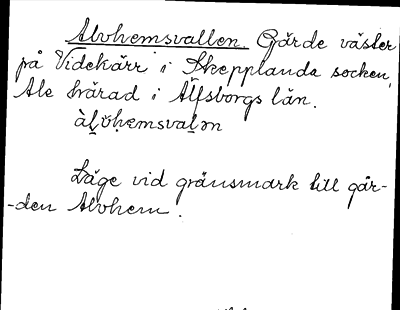 Alvhemsvallen. Gärde väster
på Videkärr i Skepplanda socken,
Ale härad i Älfsborgs län.
àl̯v̆hemsvalən
Läge vid gränsmark till går-
-den Alvhem.